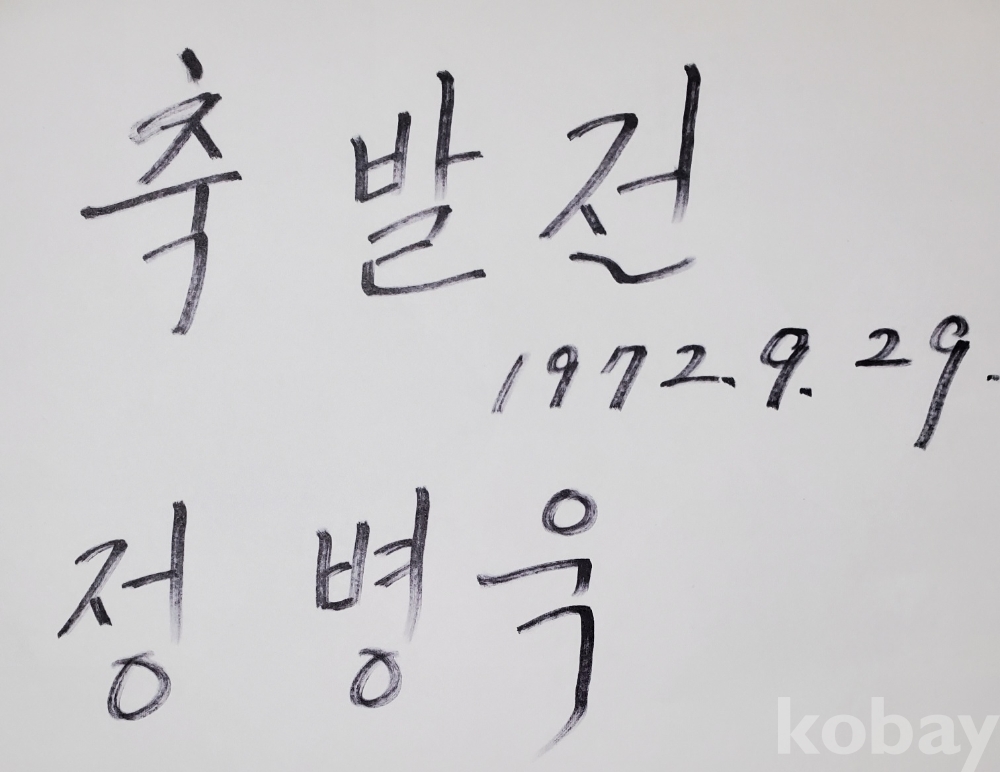 축 발 전
1972. 9. 29.
정 병 욱
kobay